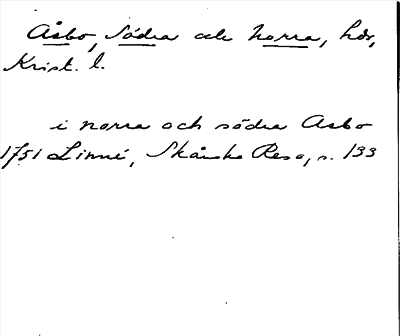 Åsbo, Södra och Norra, hdr,
Krist. l.
i norra och södra Asbo
1751 Linné, Skånska Resa, s. 133